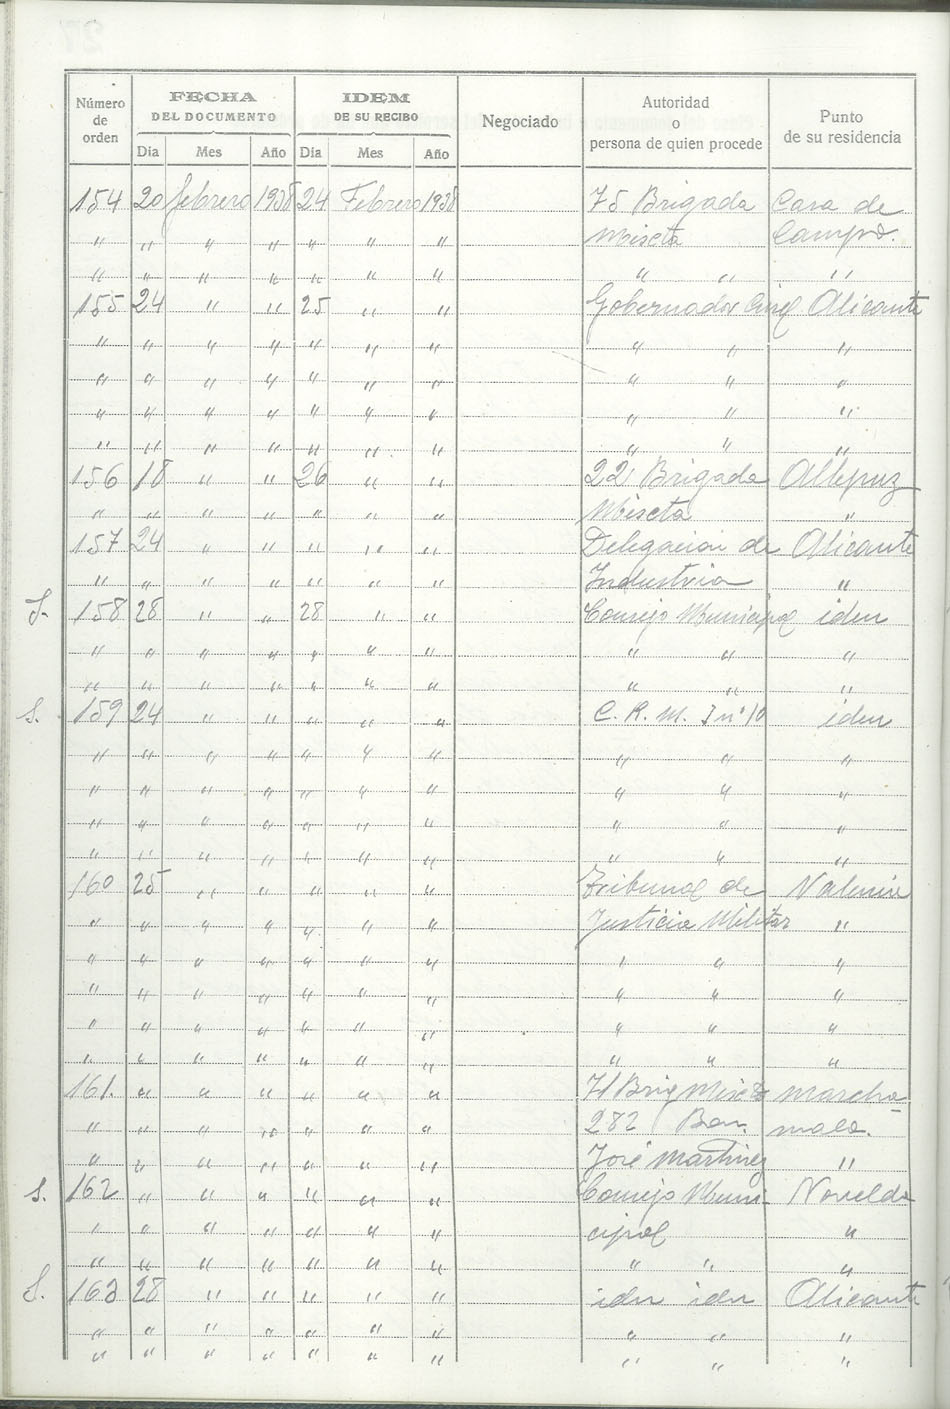 Número de orden | FECHA DEL DOCUMENTO | IDEM DE SU RECIBO | Negociado | Autoridad o persona de quien procede | Punto de su residencia
Dia | Mes | Año | Dia | Mes | Año
154 20 febrero 1938 24 Febrero 1938 75 Brigada Casa de
" " " " " " " Miscta Campo.
" " " " " " " " " "
155 24 " " 25 " " Gobernador Civil Alicante
" " " " " " " " " "
" " " " " " " " " "
" " " " " " " " " "
" " " " " " " " " "
156 18 " " 26 " " 22 Brigada Allepuz
" " " " " " " Miscta "
157 24 " " " " " Delegacion de Alicante
" " " " " " " Industria "
S. 158 28 " " 28 " " Consejo Municipal idem
" " " " " " " " " "
" " " " " " " " " "
S. 159 24 " " " " " C. R. M. I nº 10 idem
" " " " " " " " " "
" " " " " " " " " "
" " " " " " " " " "
" " " " " " " " " "
160 25 " " " " " Tribunal de Valencia
" " " " " " " Justicia Militar "
" " " " " " " " " "
" " " " " " " " " "
" " " " " " " " " "
" " " " " " " " " "
161. " " " " " " 71 Brig Miscta marcha
" " " " " " " 282 Bon. malo.
" " " " " " " José Martinez "
S. 162 " " " " " " Consejo Muni- Novelda
" " " " " " " cipal "
" " " " " " " " " "
S. 163 28 " " " " " idem idem Alicante
" " " " " " " " " "
" " " " " " " " " "